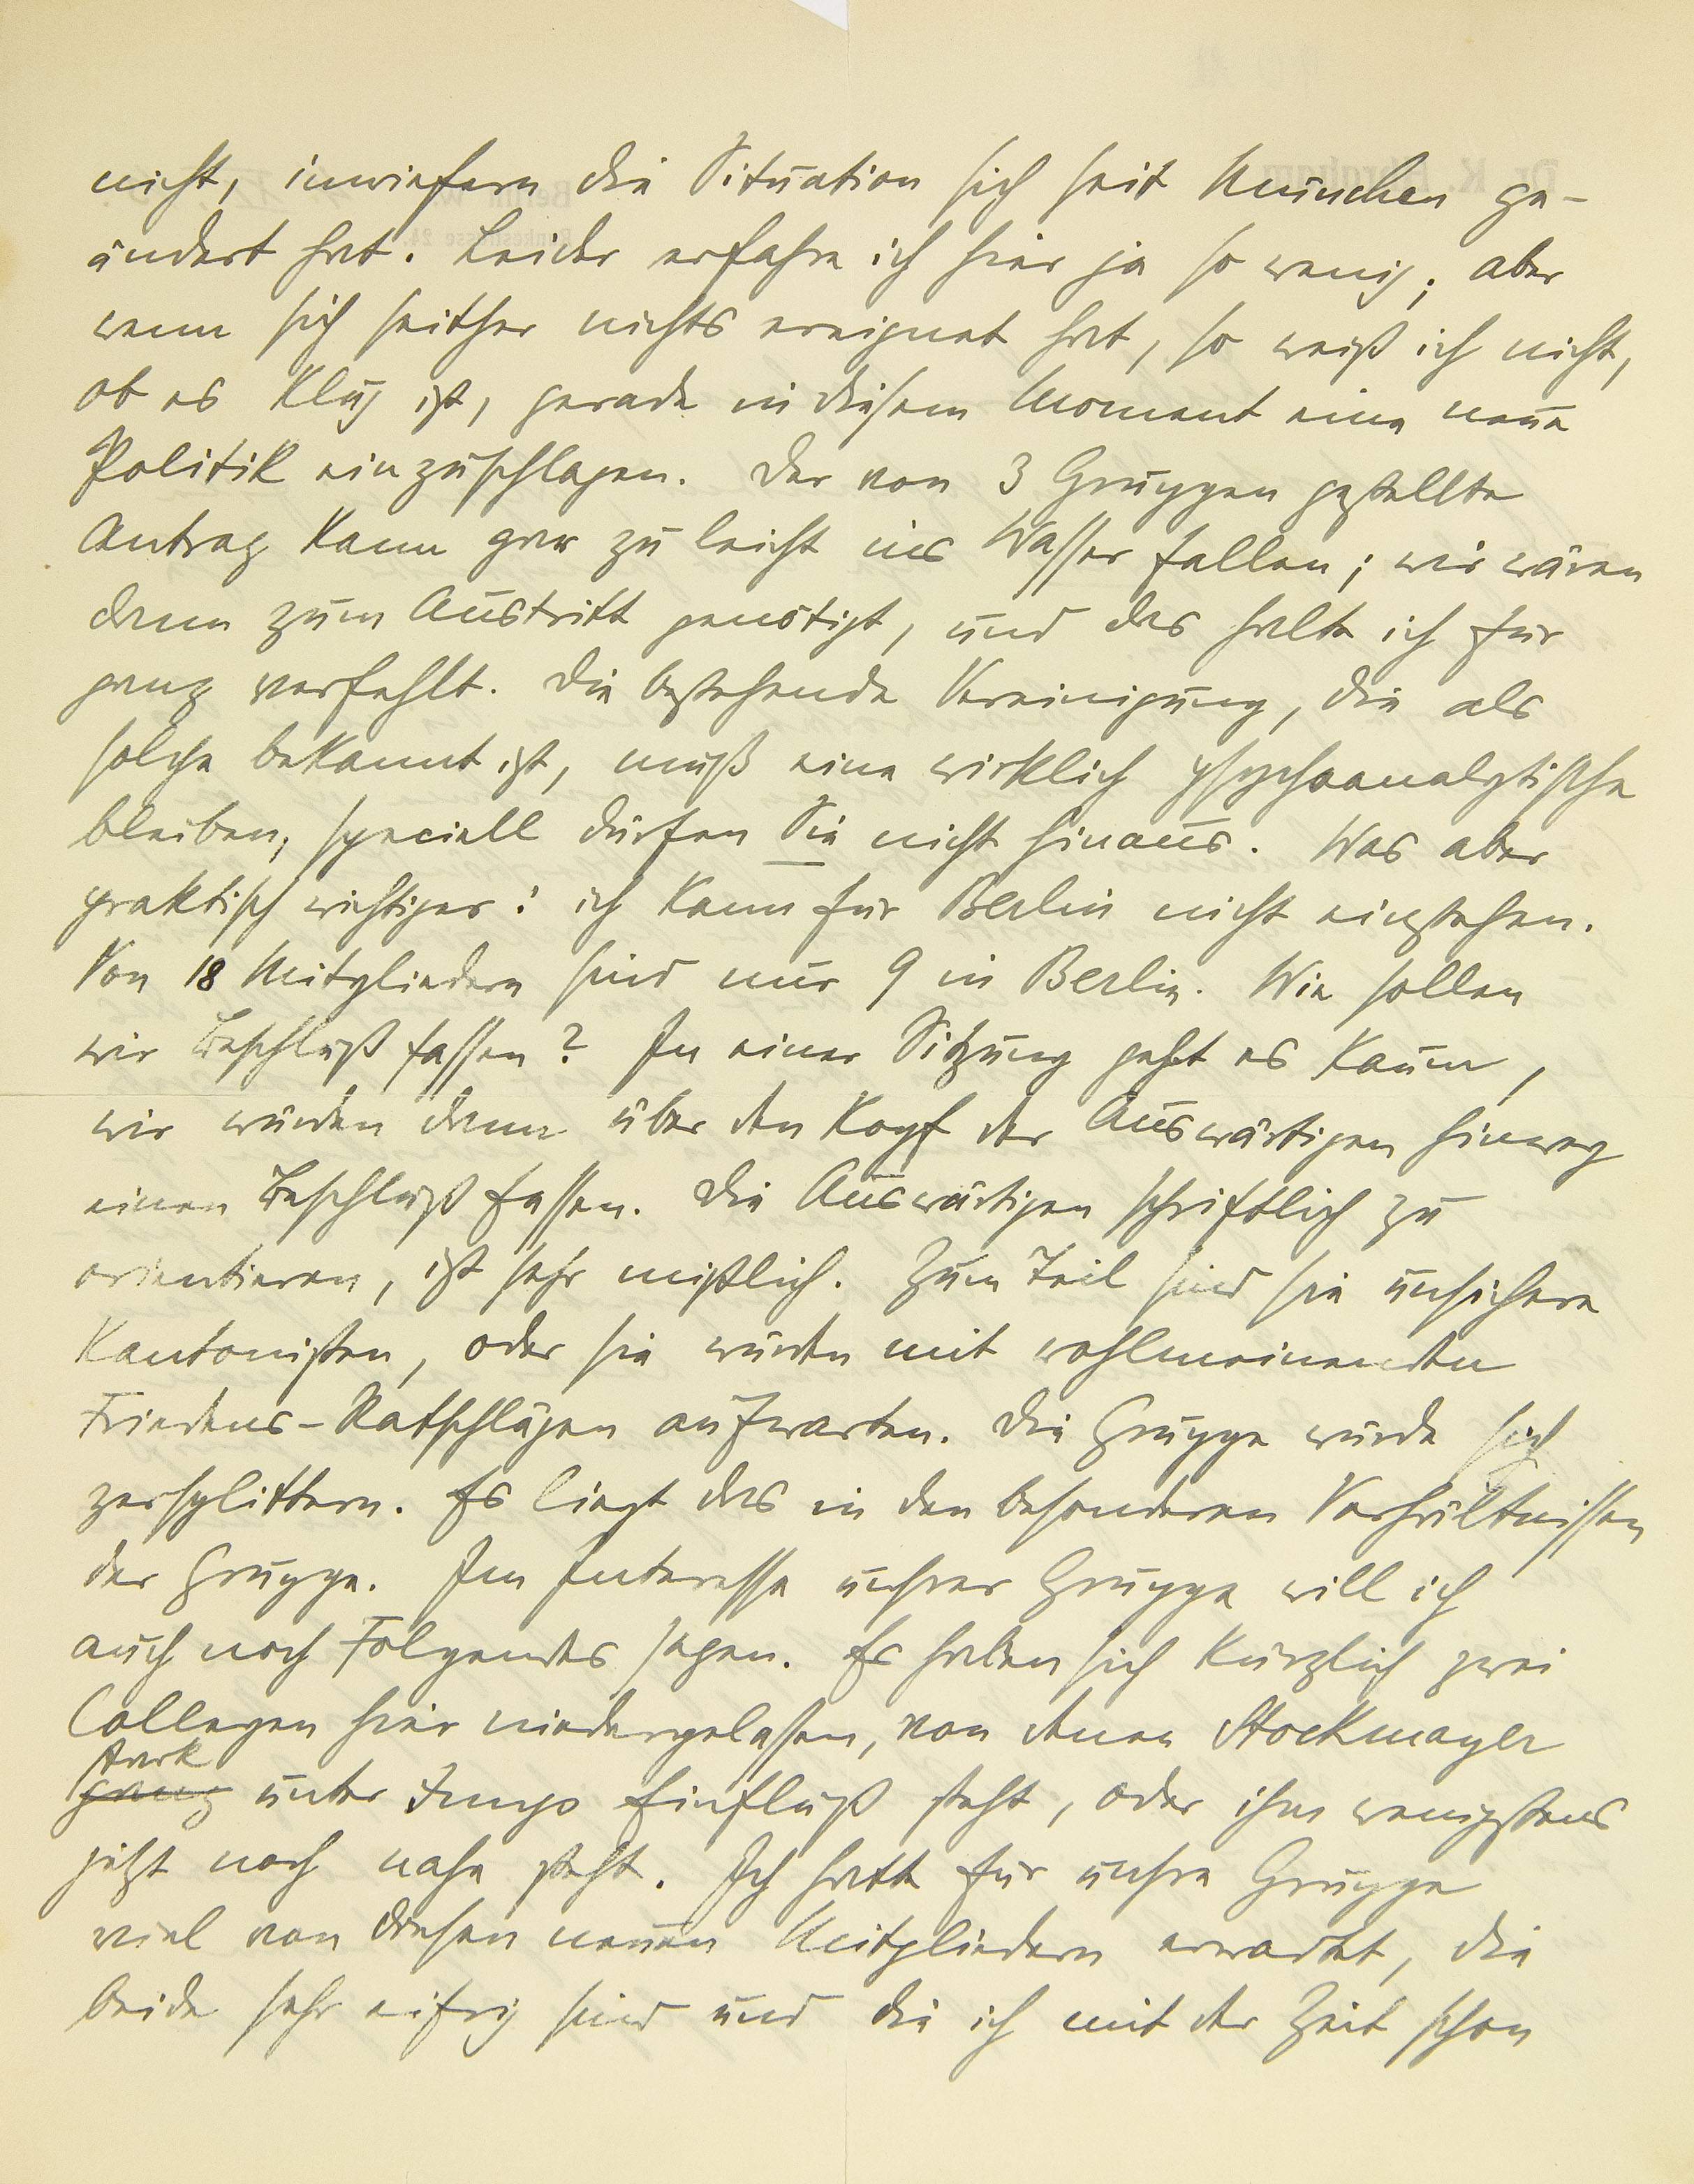 nicht, inwiefern die Situation sich seit München ge-
ändert hat. Leider erfahre ich hier ja so wenig; aber
wenn sich seither nichts ereignet hat, so weiß ich nicht,
ob es klug ist, gerade in diesem Moment eine neue
Politik einzuschlagen. Der von 3 Gruppen gestellte
Antrag kann gar zu leicht ins Wasser fallen; wir wären
dann zum Austritt genötigt, und das halte ich für
ganz verfehlt. Die bestehende Vereinigung, die als
solche bekannt ist, muß eine wirklich psychoanalytische
bleiben, speciell dürfen Sie nicht hinaus. Was aber
praktisch wichtiger: ich kann für Berlin nicht einstehen.
Von 18 Mitgliedern sind nur 9 in Berlin. Wie sollen
wir Beschluß fassen? In einer Sitzung geht es kaum,
wir würden denn über den Kopf der Auswärtigen hinweg
einen Beschluß fassen. Die Auswärtigen schriftlich zu
orientieren, ist sehr mißlich. Zum Teil sind sie unsichere
Kantonisten, oder sie würden mit wohlmeinenden
Friedens-Ratschlägen aufwarten. Die Gruppe würde sich
zersplittern. Es liegt das in den besonderen Verhältnissen
der Gruppe. Im Interesse unsrer Gruppe will ich
auch noch Folgendes sagen. Es haben sich kürzlich zwei
Collegen hier niedergelassen, von denen Stockmayer
stark
ganz unter Jungs Einfluß steht, oder ihm wenigstens
jetzt noch nahe steht. Ich hatte für unsre Gruppe
viel von diesen neuen Mitgliedern erwartet, die
beide sehr eifrig sind und die ich mit der Zeit schon